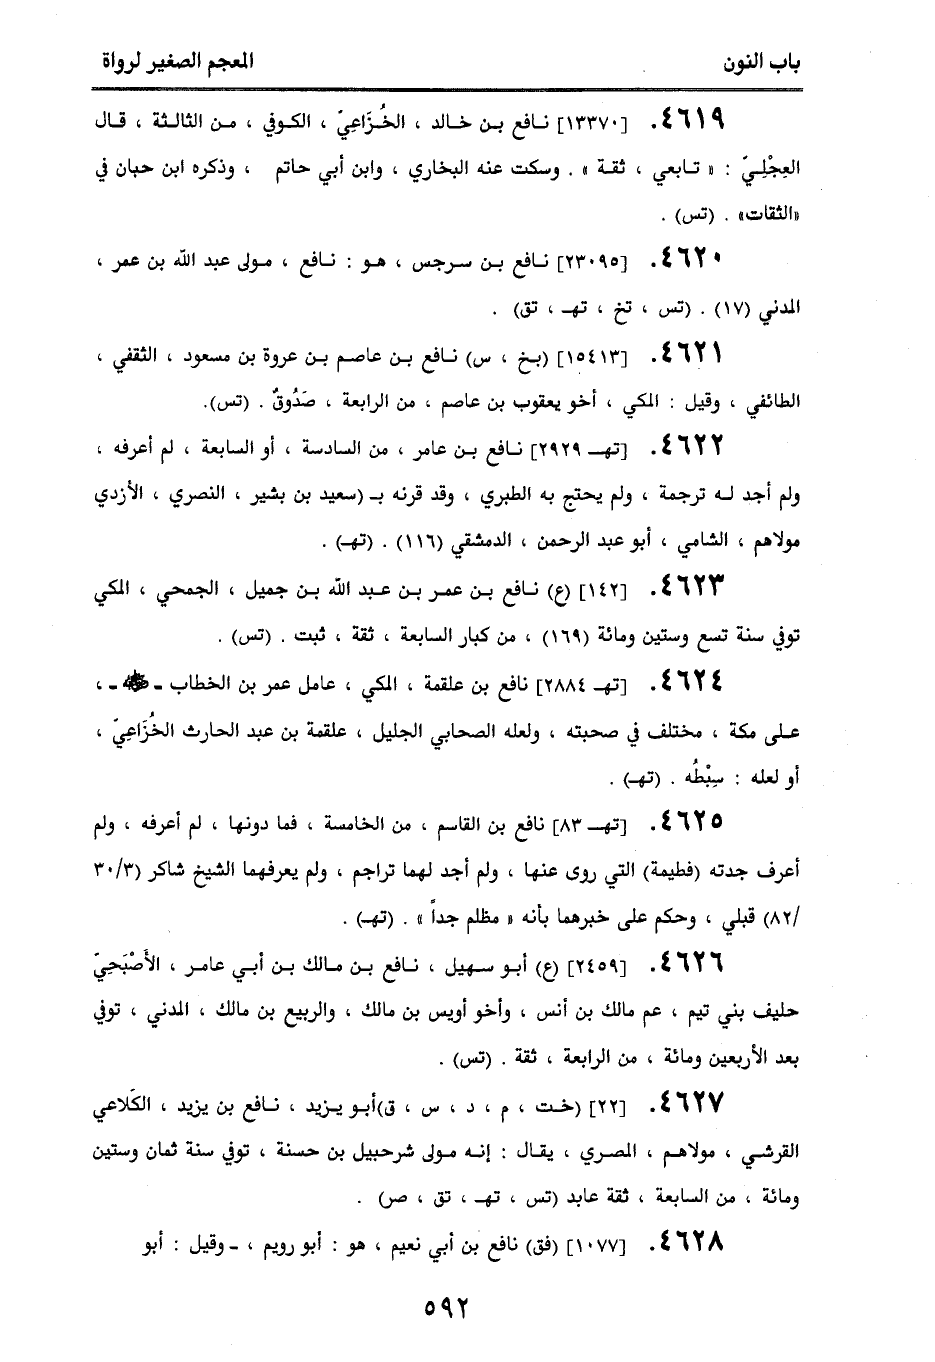 باب النون المعجم الصغير لرواة
٤٦١٩. [١٣٣٧٠] نافع بن خالد ، الخُزَاعِيّ ، الكوفي ، من الثالثة ، قال
العِجْلِيّ : « تابعي ، ثقة » . وسكت عنه البخاري ، وابن أبي حاتم ، وذكره ابن حبان في
«الثقات» . (تس) .
٤٦٢٠. [٢٣٠٩٥] نافع بن سرجس ، هو : نافع ، مولى عبد الله بن عمر ،
المدني (١٧) . (تس ، تخ ، تهـ ، تق) .
٤٦٢١. [١٥٤١٣] (بخ ، س) نافع بن عاصم بن عروة بن مسعود ، الثقفي ،
الطائفي ، وقيل : المكي ، أخو يعقوب بن عاصم ، من الرابعة ، صَدُوقٌ . (تس).
٤٦٢٢. [تهـ ٢٩٢٩] نافع بن عامر ، من السادسة ، أو السابعة ، لم أعرفه ،
ولم أجد له ترجمة ، ولم يحتج به الطبري ، وقد قرنه بـ (سعيد بن بشير ، النصري ، الأزدي
مولاهم ، الشامي ، أبو عبد الرحمن ، الدمشقي (١١٦) . (تهـ) .
٤٦٢٣. [١٤٢] (ع) نافع بن عمر بن عبد الله بن جميل ، الجمحي ، المكي
توفي سنة تسع وستين ومائة (١٦٩) ، من كبار السابعة ، ثقة ، ثبت . (تس) .
٤٦٢٤. [تهـ ٢٨٨٤] نافع بن علقمة ، المكي ، عامل عمر بن الخطاب ـ ـ ،
على مكة ، مختلف في صحبته ، ولعله الصحابي الجليل ، علقمة بن عبد الحارث الخُزَاعِيّ ،
أو لعله : سِبْطُه . (تهـ) .
٤٦٢٥. [تهـ ٨٣] نافع بن القاسم ، من الخامسة ، فما دونها ، لم أعرفه ، ولم
أعرف جدته (فطيمة) التي روى عنها ، ولم أجد لهما تراجم ، ولم يعرفهما الشيخ شاكر (٣٠/٣
/٨٢) قبلي ، وحكم على خبرهما بأنه « مظلم جداً » . (تهـ) .
٤٦٢٦. [٢٤٥٩] (ع) أبو سهيل ، نافع بن مالك بن أبي عامر ، الأَصْبَحِيّ
حليف بني تيم ، عم مالك بن أنس ، وأخو أويس بن مالك ، والربيع بن مالك ، المدني ، توفي
بعد الأربعين ومائة ، من الرابعة ، ثقة . (تس) .
٤٦٢٧. [٢٢] (خت ، م ، د ، س ، ق)أبو يزيد ، نافع بن يزيد ، الكَلاعي
القرشي ، مولاهم ، المصري ، يقال : إنه مولى شرحبيل بن حسنة ، توفي سنة ثمان وستين
ومائة ، من السابعة ، ثقة عابد (تس ، تهـ ، تق ، ص) .
٤٦٢٨. [١٠٧٧] (فق) نافع بن أبي نعيم ، هو : أبو رويم ، ـ وقيل : أبو
٥٩٢